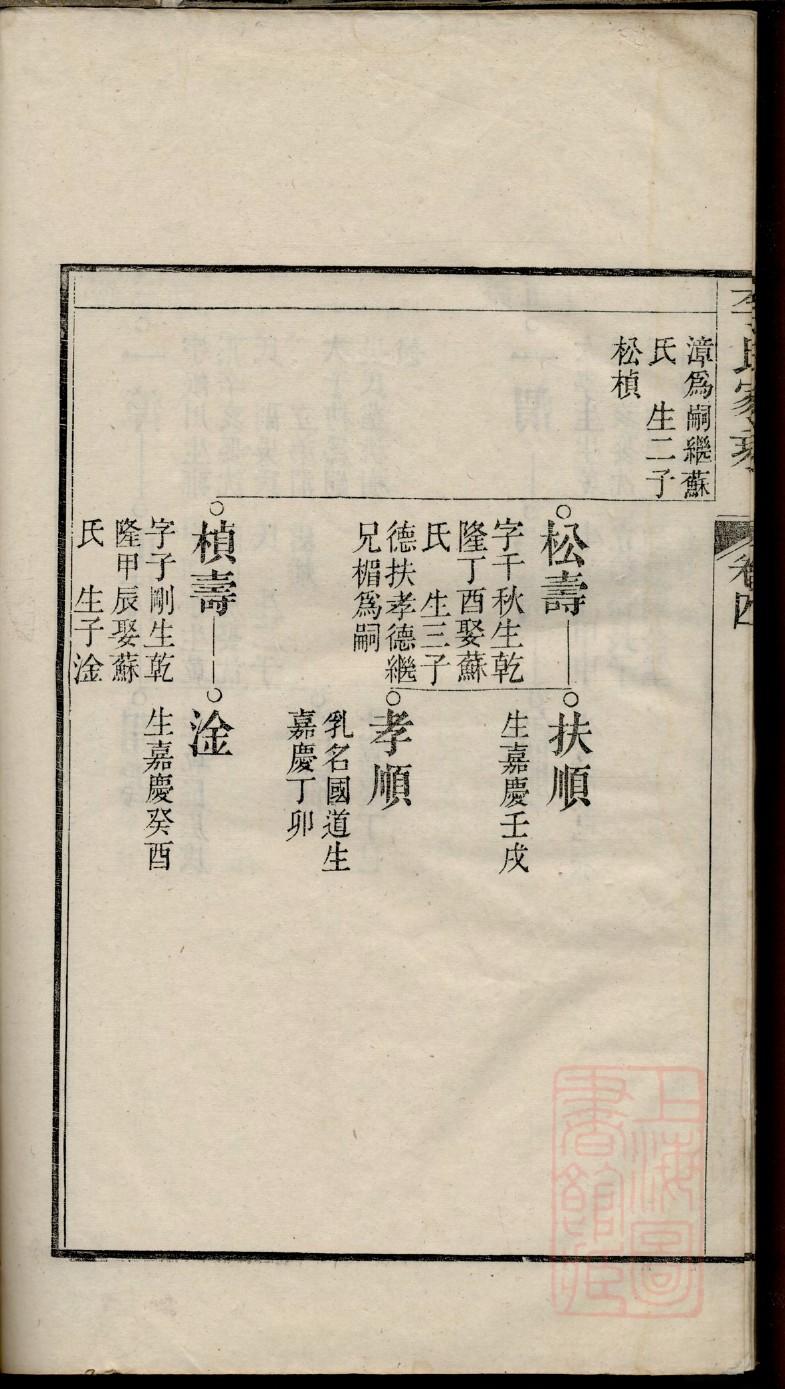 李氏家乘
卷四
漳爲嗣繼蘇
氏　生二子
松楨
松壽
字千秋生乾
隆丁酉娶蘇
氏　生三子
德扶孝德繼
兄楣爲嗣
扶順
生嘉慶壬戌
孝順
乳名國道生
嘉慶丁卯
楨壽
字子剛生乾
隆甲辰娶蘇
氏　生子淦
淦
生嘉慶癸酉
上海圖
書館藏